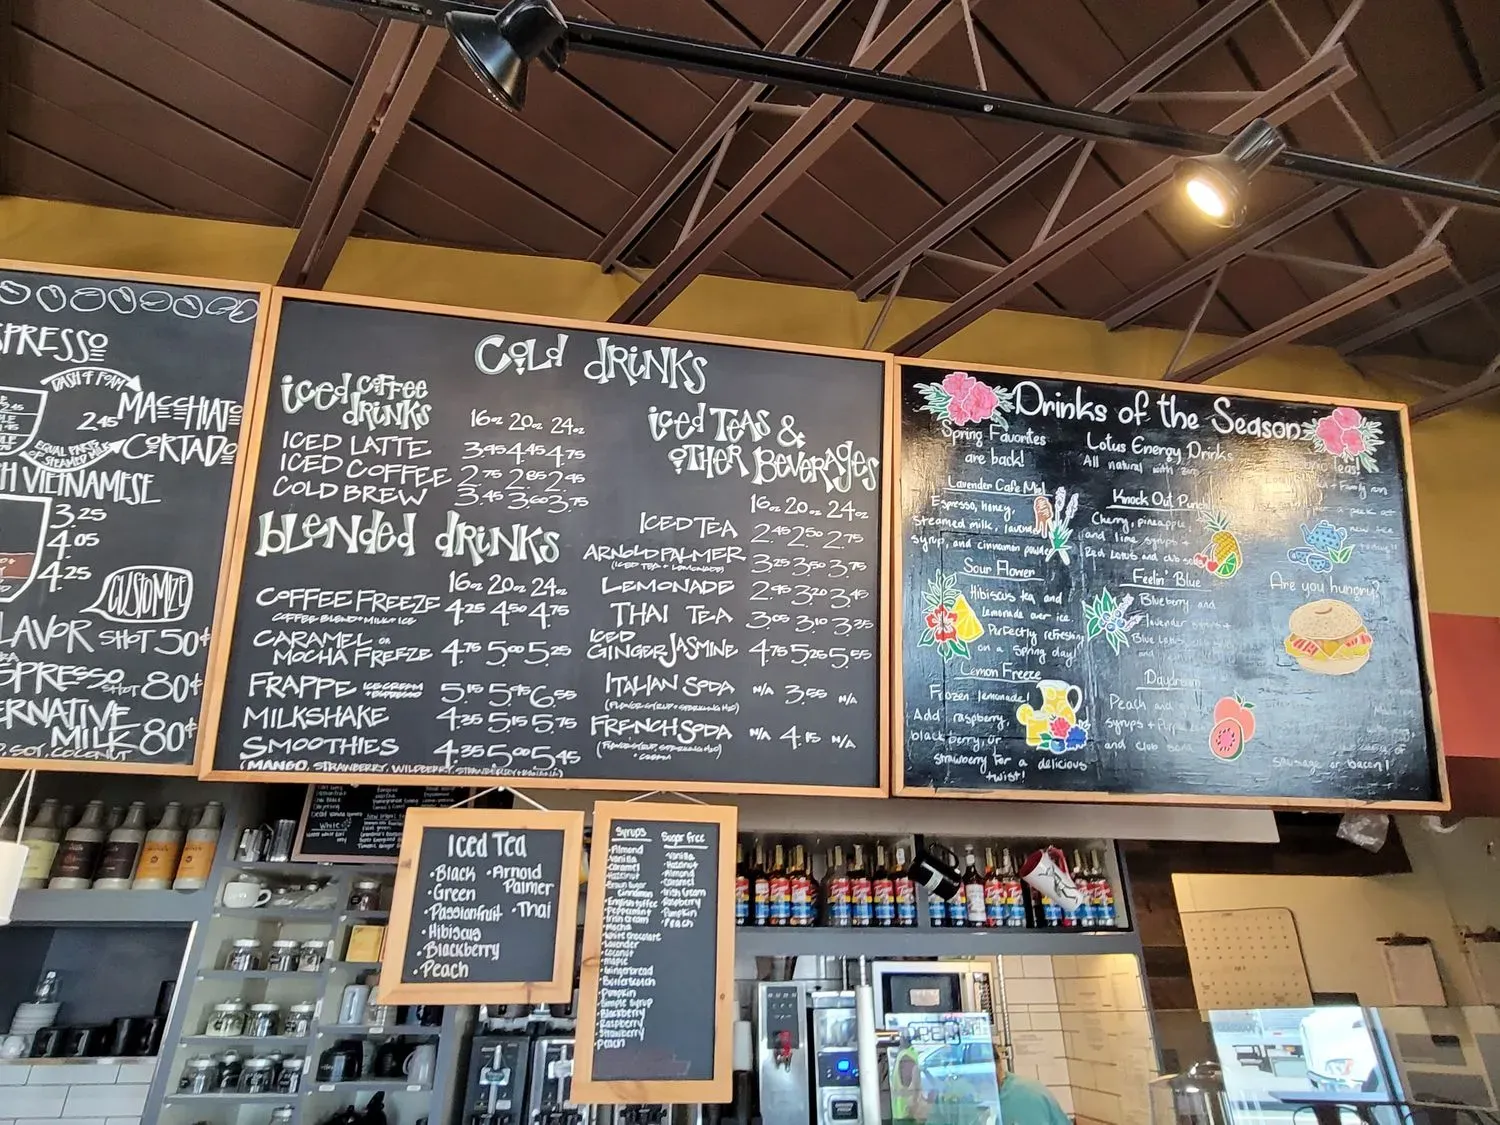 PRESSO
DASH OF FOAM
2.45 MACCHIATO
CORTADO
EQUAL PARTS
OF STEAMED MILK
VIETNAMESE
3.25
4.05
4.25
CUSTOMIZE
SHOT 50¢
SHOT 80¢
MILK 80¢
SOY, COCONUT
COLD DRINKS
ICED COFFEE
DRINKS
16oz 20oz 24oz
ICED LATTE 3.95 4.45 4.75
ICED COFFEE 2.75 2.85 2.95
COLD BREW 3.45 3.60 3.75
BLENDED DRINKS
16oz 20oz 24oz
COFFEE FREEZE 4.25 4.50 4.75
COFFEE BLEND + MILK + ICE
CARAMEL OR
MOCHA FREEZE 4.75 5.00 5.25
FRAPPE ICE CREAM + ESPRESSO 5.15 5.95 6.55
MILKSHAKE 4.35 5.15 5.75
SMOOTHIES 4.35 5.00 5.45
(MANGO, STRAWBERRY, WILDBERRY, STRAWBERRY + BANANA)
ICED TEAS &
OTHER BEVERAGES
16oz 20oz 24oz
ICED TEA 2.45 2.50 2.75
ARNOLD PALMER 3.25 3.50 3.75
(ICED TEA + LEMONADE)
LEMONADE 2.95 3.20 3.45
THAI TEA 3.05 3.10 3.35
ICED
GINGER JASMINE 4.75 5.25 5.55
ITALIAN SODA N/A 3.55 N/A
(FLAVOR SYRUP + SPARKLING H2O)
FRENCH SODA N/A 4.15 N/A
Drinks of the Season
Spring Favorites
are back!
Lavender Cafe Miel
Espresso, honey,
steamed milk, lavender
syrup, and cinnamon powder
Sour Flower
Hibiscus tea and
lemonade over ice.
Perfectly refreshing
on a spring day!
Lemon Freeze
Frozen lemonade!
Add raspberry,
blackberry, or
strawberry for a delicious
twist!
Lotus Energy Drinks
All natural with
Knock Out Punch
Cherry, pineapple,
and lime syrups +
Red Lotus and club soda
Feelin' Blue
Blueberry and
lavender syrups +
Blue Lotus
Peach and
syrups + Purple
and club soda
Are you hungry?
sausage or bacon!
Iced Tea
• Black
• Green
• Passionfruit
• Hibiscus
• Blackberry
• Peach
• Arnold
Palmer
• Thai
Syrups
• Almond
• Vanilla
• Caramel
• Hazelnut
• Brown Sugar
Cinnamon
• English toffee
• Peppermint
• Irish Cream
• Mocha
• White Chocolate
• Lavender
• Coconut
• Maple
• Gingerbread
• Butterscotch
• Pumpkin
• Simple Syrup
• Blackberry
• Raspberry
• Strawberry
• Peach
Sugar Free
• Vanilla
• Hazelnut
• Almond
• Caramel
• Irish Cream
• Raspberry
• Pumpkin
• Peach